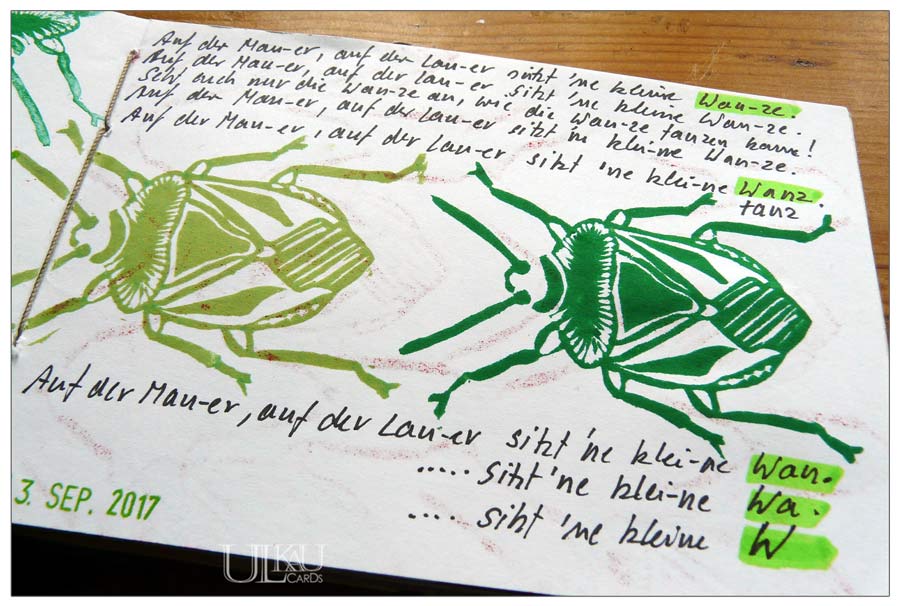 Auf der Mau-er, auf der Lau-er sitzt 'ne kleine Wan-ze.
Auf der Mau-er, auf der Lau-er sitzt 'ne kleine Wan-ze.
Seht euch nur die Wan-ze an, wie die Wan-ze tanzen kann!
Auf der Mau-er, auf der Lau-er sitzt 'ne klei-ne Wan-ze.
Auf der Mau-er, auf der Lau-er sitzt 'ne klei-ne Wanz.
tanz
Auf der Mau-er, auf der Lau-er sitzt 'ne klei-ne Wan.
..... sitzt 'ne klei-ne Wa.
.... sitzt 'ne kleine W
3. SEP. 2017
ULKAU
CARDS